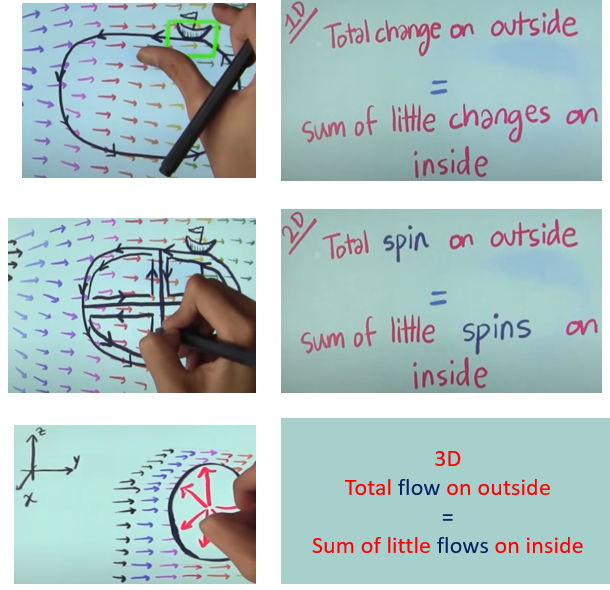 1D
Total change on outside
=
sum of little changes on
inside
2D
Total spin on outside
=
sum of little spins on
inside
z
y
x
3D
Total flow on outside
=
Sum of little flows on inside